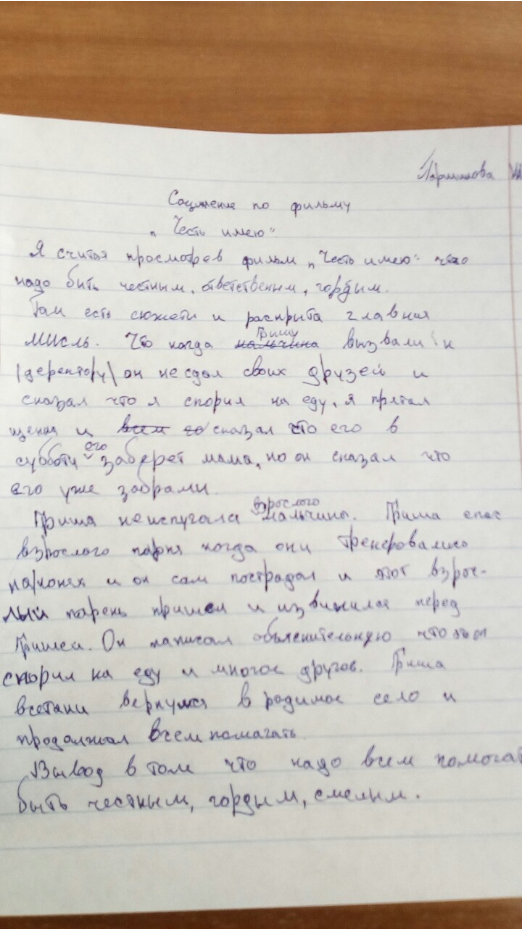 Сочинение по фильму
"Честь имею"
Я считая просмотрев фильм "Честь имею" что
надо быть честным, ответственым, гордым.
Там есть сюжети и раскрыта главная
мысль. Что когда мальчика Гришу вызвали к
(деректору) он не сдал своих друзей и
сказал что я спорил на еду, я прятал
щенка и всем со сказал что его в
субботу его заберет мама, но он сказал что
его уже забрали.
Гриша неиспугала взрослого мальчика. Гриша спас
взрослого парня когда они тренеровались
на конях и он сам пострадал и этот взрос-
лый парень пришел и извинился перед
Гришей. Он написал объяснительную что он
спорил на еду и многое другое. Гриша
всетаки вернулся в родимое село и
продолжал всем помагать.
Вывод в том что надо всем помогат
быть честным, гордым, смелым.